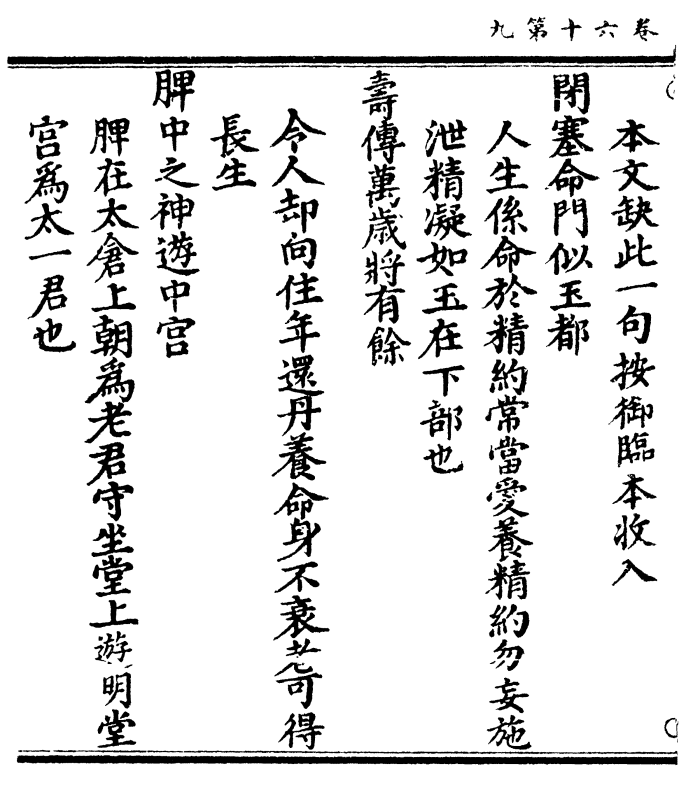 卷六十第九
本文缺此一句按御臨本收入
閉塞命門似玉都
人生係命於精約常當愛養精約勿妄施
泄精凝如玉在下部也
壽傳萬歲將有餘
令人却向住年還丹養命身不衰老可得
長生
脾中之神遊中宮
脾在太倉上朝爲老君守坐堂上遊明堂
宮爲太一君也